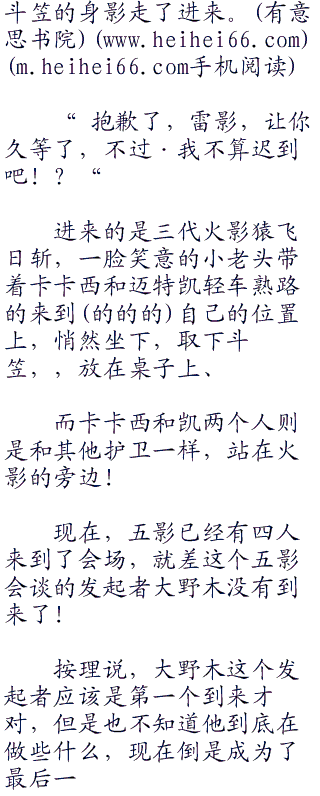 斗笠的身影走了进来。(有意
思书院)(www.heihei66.com)
(m.heihei66.com手机阅读)
“ 抱歉了，雷影，让你
久等了，不过·我不算迟到
吧！？“
进来的是三代火影猿飞
日斩，一脸笑意的小老头带
着卡卡西和迈特凯轻车熟路
的来到(的的的)自己的位置
上，悄然坐下，取下斗
笠，，放在桌子上、
而卡卡西和凯两个人则
是和其他护卫一样，站在火
影的旁边！
现在，五影已经有四人
来到了会场，就差这个五影
会谈的发起者大野木没有到
来了！
按理说，大野木这个发
起者应该是第一个到来才
对，但是也不知道他到底在
做些什么，现在倒是成为了
最后一